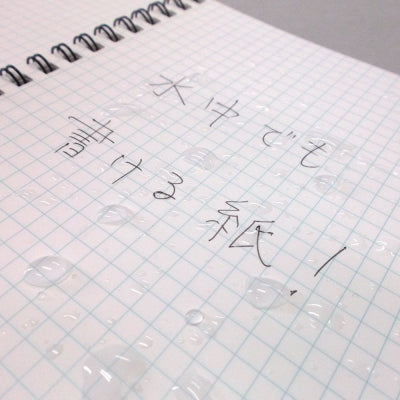 水中でも
書ける紙!